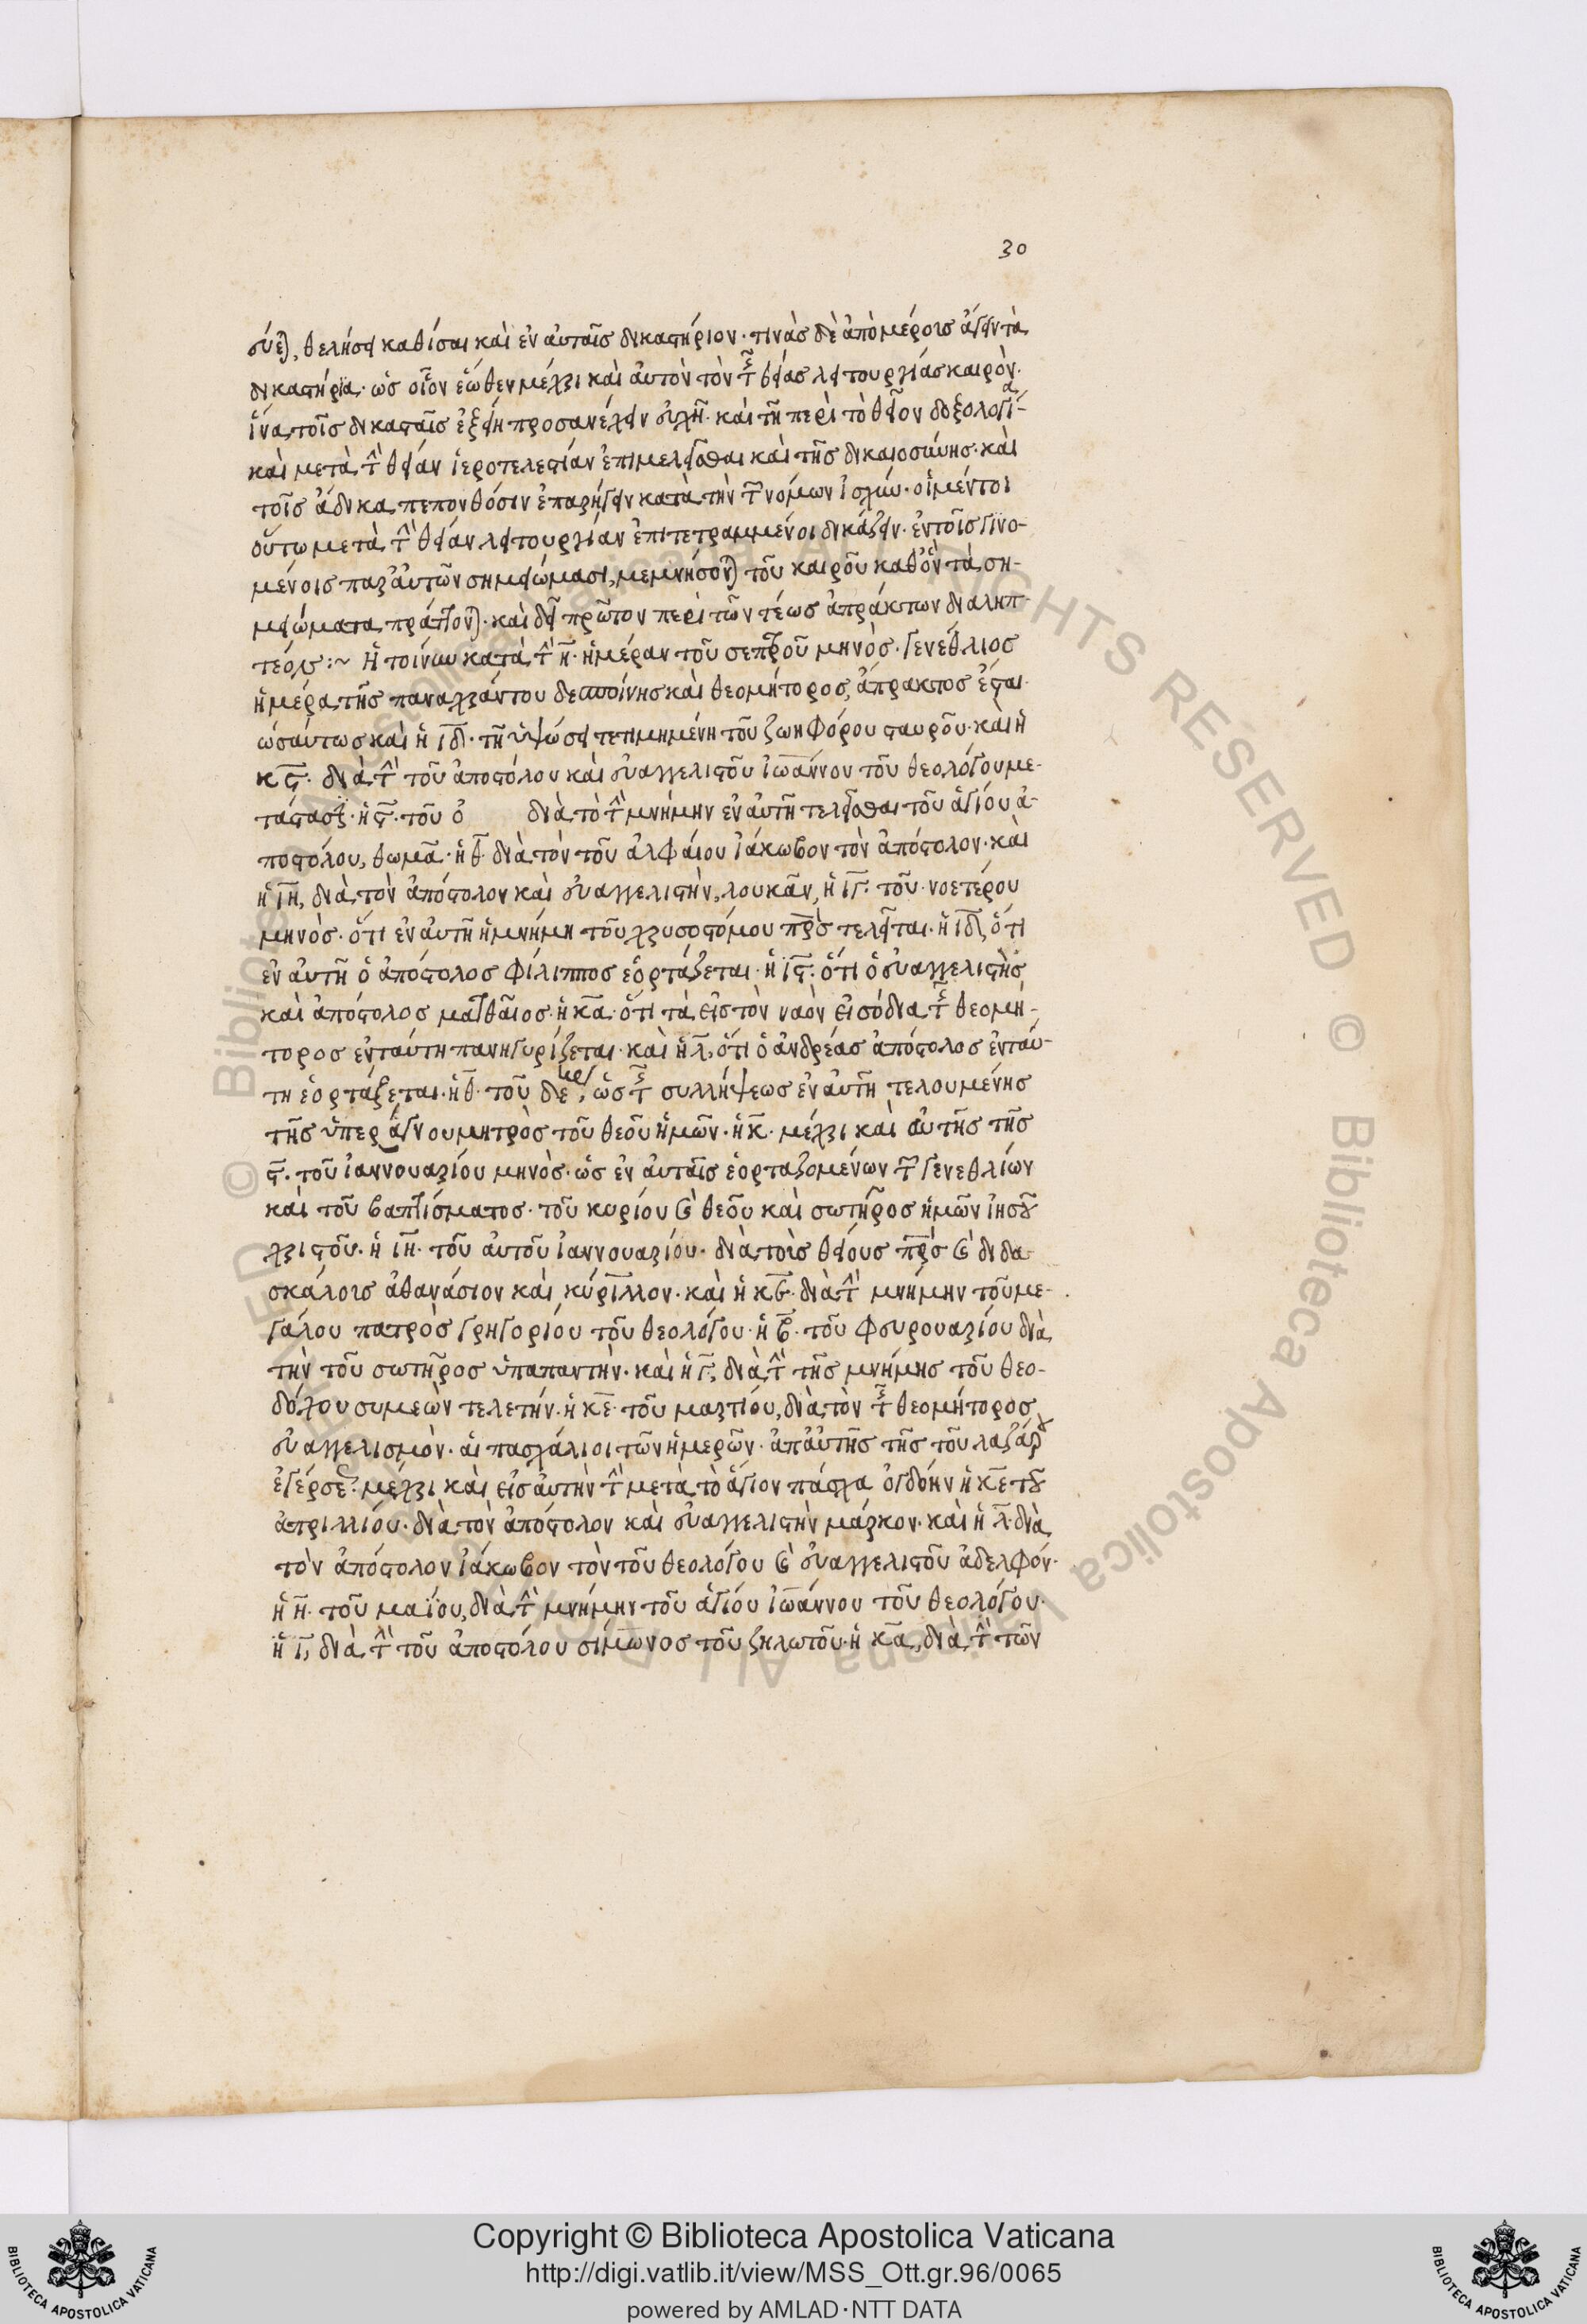 30
σύε), θελήσει καθίσαι καὶ ἐν αὐταῖς δικαστήριον· τινὰς δὲ ἀπὸ μέρους ἄγειν τὰ
δικαστήρια· ὡς οἷον ἕωθεν μέχρι καὶ αὐτὸν τὸν τῆς θείας λειτουργίας καιρὸν·
ἵνα τοῖς δικασταῖς ἐξείη προσανέχειν εὐχῆ· καὶ τῆ περὶ τὸ θεῖον δοξολογία-
καὶ μετὰ τὴν θείαν ἱεροτελεστίαν ἐπιμελεῖσθαι καὶ τῆς δικαιοσύνης· καὶ
τοῖς ἄδικα πεπονθόσιν ἐπαρήγειν κατὰ τὴν τῶν νόμων ἰσχύν· οἱ μέντοι
οὕτω μετὰ τὴν θείαν λειτουργίαν ἐπιτετραμμένοι δικάζειν· ἐν τοῖς γινο-
μένοις παρ' αὐτῶν σημειώμασι, μεμνήσον) τοῦ καιροῦ καθ' ὃν τὰ ση-
μειώματα πράττον)· καὶ δεῖ πρῶτον περὶ τῶν τέως ἀπράκτων διαληπ-
τέον :~ Ἡ τοίνυν κατὰ τὴν η· ἡμέραν τοῦ σεπτροῦ μηνὸς· γενέθλιος
ἡμέρα τῆς παναχράντου δεσποίνης καὶ θεομήτορος, ἄπρακτος ἔσται·
ὡσαύτως καὶ ἡ ιδ· τῆ ὑψώσει τετιμημένη τοῦ ζωηφόρου σταυροῦ· καὶ ἡ
κϛ· διὰ τὴν τοῦ ἀποστόλου καὶ εὐαγγελιστοῦ ἰωάννου τοῦ θεολόγου με-
τάστασιν· ἡ ϛ· τοῦ ὀ διὰ τὸ τὴν μνήμην ἐν αὐτῆ τελεῖσθαι τοῦ ἁγίου ἀ-
ποστόλου, θωμᾶ· ἡ θ· διὰ τὸν τοῦ ἀλφαίου ἰάκωβον τὸν ἀπόστολον· καὶ
ἡ ιη, διὰ τὸν ἀπόστολον καὶ εὐαγγελιστὴν, λουκᾶν, ἡ ιγ· τοῦ νοετέρου
μηνὸς· ὅτι ἐν αὐτῆ ἡ μνήμη τοῦ χρυσοστόμου πρς τελεῖται· ἡ ιδ, ὅτι
ἐν αὐτῆ ὁ ἀπόστολος φίλιππος ἑορτάζεται· ἡ ιϛ· ὅτι ὁ εὐαγγελιστὴς
καὶ ἀπόστολος ματθαῖος· ἡ κα· ὅτι τὰ εἰς τὸν ναὸν εἰσόδια τῆς θεομή-
τορος ἐν ταύτη πανηγυρίζεται· καὶ ἡ λ, ὅτι ὁ ἀνδρέας ἀπόστολος ἐν ταύ-
τη ἑορτάζεται· ἡ θ· τοῦ δε, ὡς τῆς συλλήψεως ἐν αὐτῆ τελουμένης
τῆς ὑπεράγνου μητρὸς τοῦ θεοῦ ἡμῶν· ἡ κ· μέχρι καὶ αὐτῆς τῆς
ϛ· τοῦ ἰαννουαρίου μηνὸς· ὡς ἐν αὐταῖς ἑορταζομένων τῶν γενεθλίων
καὶ τοῦ βαπτίσματος· τοῦ κυρίου καὶ θεοῦ καὶ σωτῆρος ἡμῶν ἰησοῦ
χριστοῦ· ἡ ιη· τοῦ αὐτοῦ ἰαννουαρίου· διὰ τοὺς θείους πρς καὶ διδα
σκάλους ἀθανάσιον καὶ κύριλλον· καὶ ἡ κε· διὰ τὴν μνήμην τοῦ με-
γάλου πατρὸς γρηγορίου τοῦ θεολόγου· ἡ β· τοῦ φευρουαρίου διὰ
τὴν τοῦ σωτῆρος ὑπαπαντήν· καὶ ἡ γ, διὰ τὴν τῆς μνήμης τοῦ θεο-
δόχου συμεὼν τελετήν· ἡ κε· τοῦ μαρτίου, διὰ τὸν τῆς θεομήτορος
εὐαγγελισμὸν· αἱ πασχάλιοι τῶν ἡμερῶν· ἀπ' αὐτῆς τῆς τοῦ λαζάρου
ἐγέρσεως· μέχρι καὶ εἰς αὐτὴν τὴν μετὰ τὸ ἅγιον πάσχα ὀγδόην ἡ κε τοῦ
ἀπριλλίου· διὰ τὸν ἀπόστολον καὶ εὐαγγελιστὴν μάρκον· καὶ ἡ λ· διὰ
τὸν ἀπόστολον ἰάκωβον τὸν τοῦ θεολόγου καὶ εὐαγγελιστοῦ ἀδελφόν·
ἡ η· τοῦ μαΐου, διὰ τὴν μνήμην τοῦ ἁγίου ἰωάννου τοῦ θεολόγου·
ἡ ι, διὰ τὴν τοῦ ἀποστόλου σίμωνος τοῦ ζηλωτοῦ· ἡ κα, διὰ τὴν τῶν
© Biblioteca Apostolica Vaticana ALL RIGHTS RESERVED
Copyright © Biblioteca Apostolica Vaticana
http://digi.vatlib.it/view/MSS_Ott.gr.96/0065
powered by AMLAD·NTT DATA
BIBLIOTECA APOSTOLICA VATICANA
BIBLIOTECA APOSTOLICA VATICANA